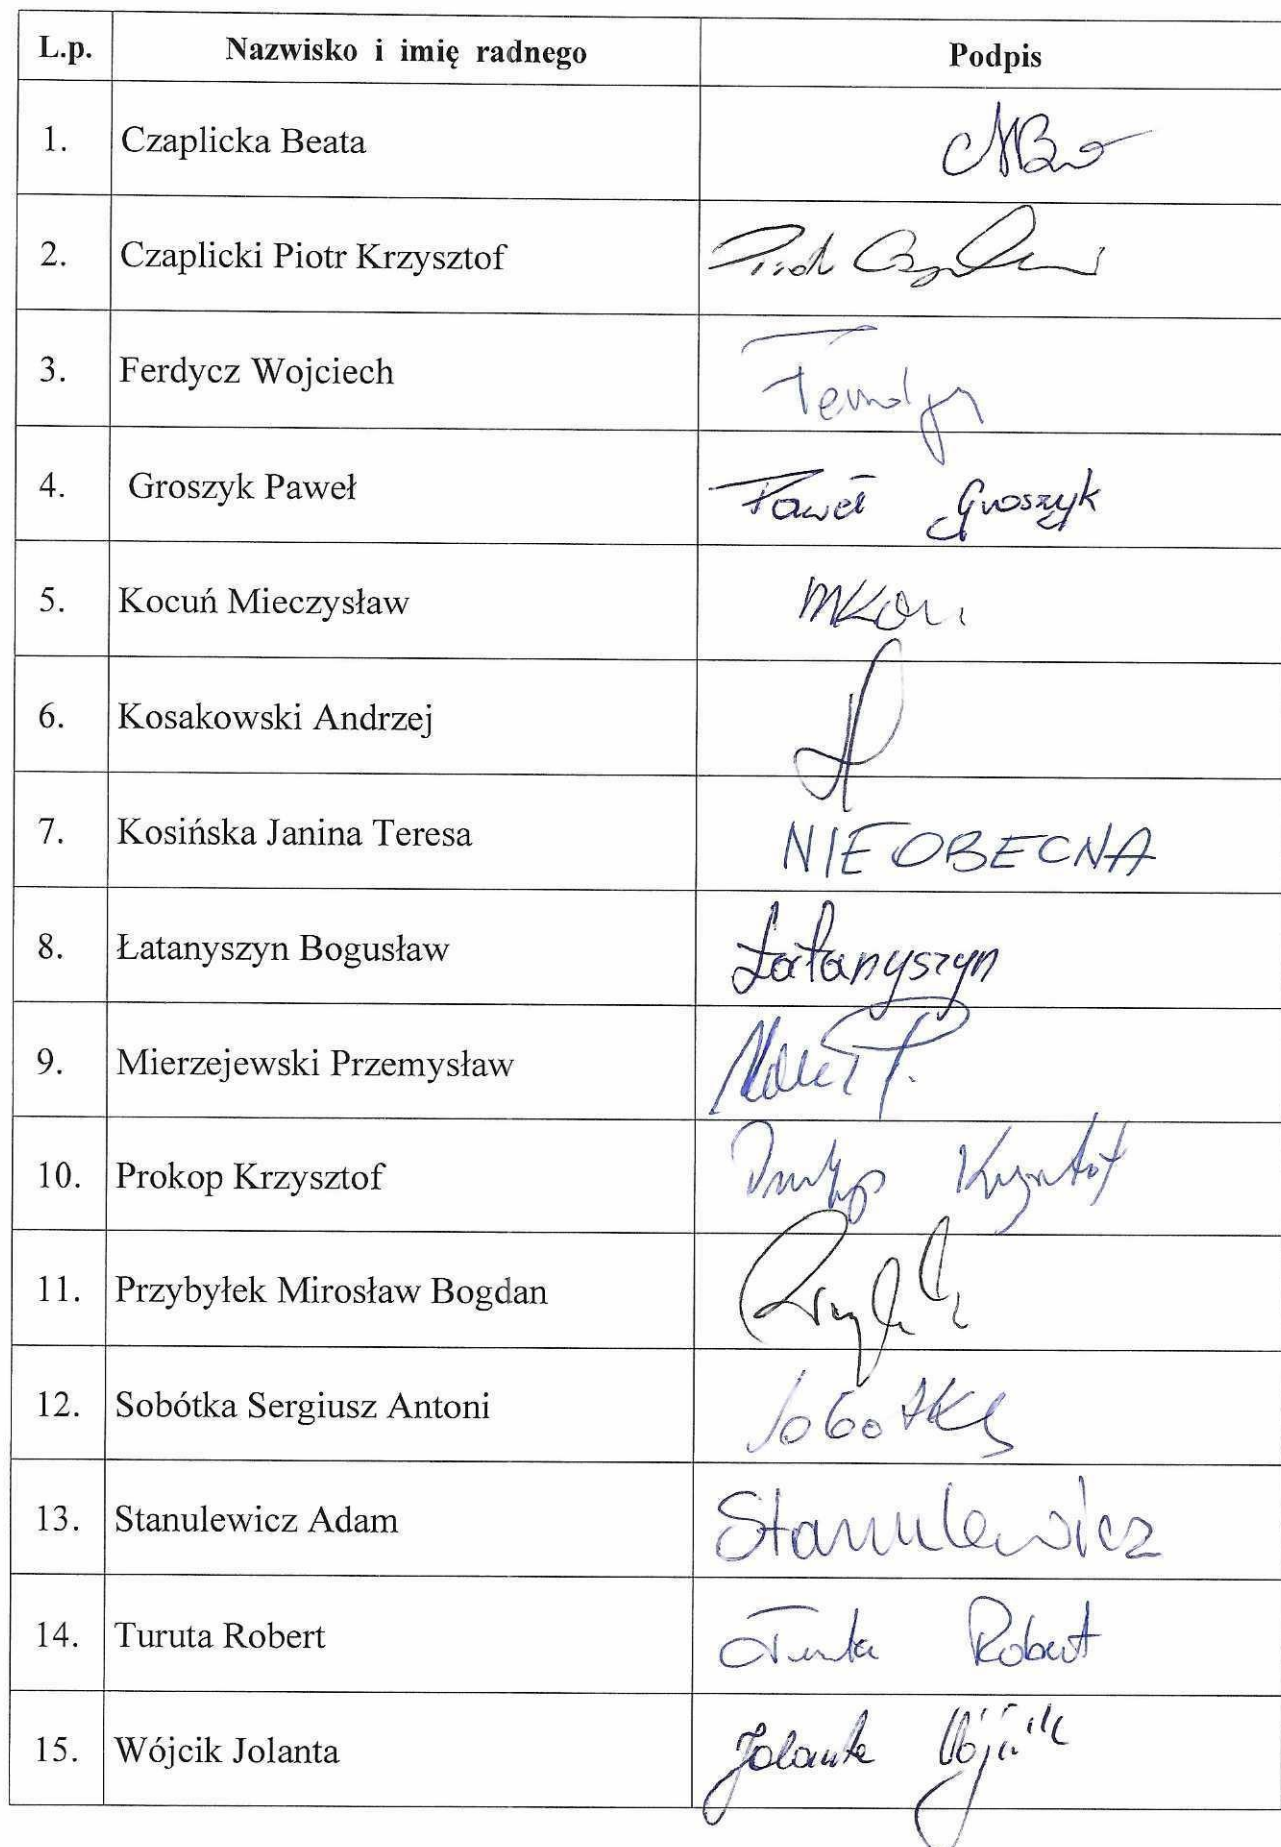 L.p. Nazwisko i imię radnego Podpis
1. Czaplicka Beata
2. Czaplicki Piotr Krzysztof
3. Ferdycz Wojciech
4. Groszyk Paweł Paweł Groszyk
5. Kocuń Mieczysław
6. Kosakowski Andrzej
7. Kosińska Janina Teresa NIEOBECNA
8. Łatanyszyn Bogusław Łatanyszyn
9. Mierzejewski Przemysław
10. Prokop Krzysztof Prokop Krzysztof
11. Przybyłek Mirosław Bogdan
12. Sobótka Sergiusz Antoni Sobótka
13. Stanulewicz Adam Stanulewicz
14. Turuta Robert Turuta Robert
15. Wójcik Jolanta Jolanta Wójcik